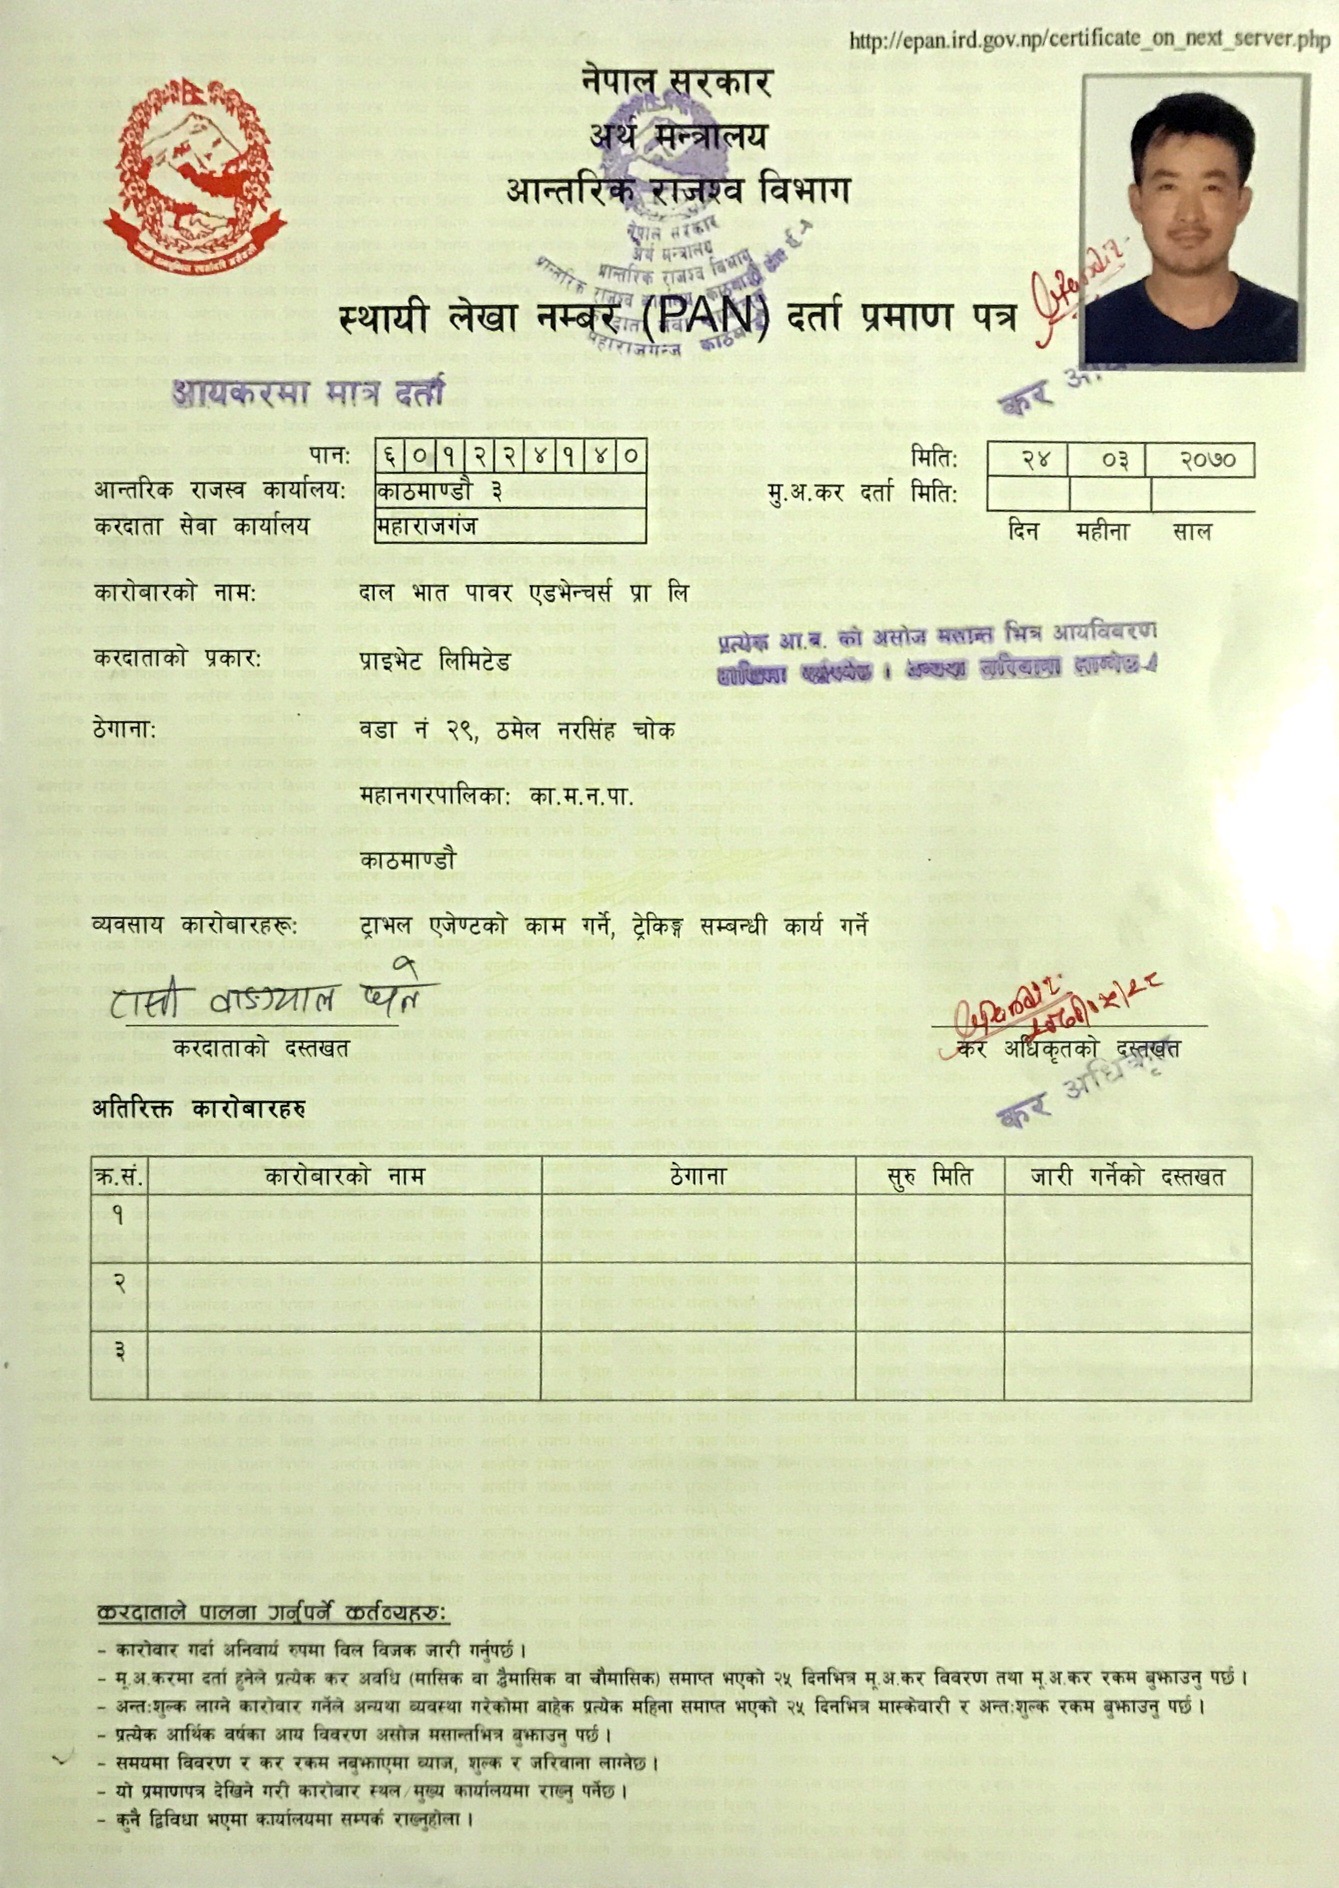 http://epan.ird.gov.np/certificate_on_next_server.php
नेपाल सरकार
अर्थ मन्त्रालय
आन्तरिक राजश्व विभाग
नेपाल सरकार
अर्थ मन्त्रालय
आन्तरिक राजश्व विभाग
महाराजगन्ज
स्थायी लेखा नम्बर (PAN) दर्ता प्रमाण पत्र
आयकरमा मात्र दर्ता
कर
पान: ६०१२२४१४०
मिति: २४ ०३ २०७०
आन्तरिक राजस्व कार्यालय: काठमाण्डौ ३
मु.अ.कर दर्ता मिति:
करदाता सेवा कार्यालय महाराजगंज
दिन महीना साल
कारोबारको नाम: दाल भात पावर एडभेन्चर्स प्रा लि
प्रत्येक आ.ब. को असोज मसान्त भित्र आयविवरण
करदाताको प्रकार: प्राइभेट लिमिटेड
ठेगाना: वडा नं २९, ठमेल नरसिंह चोक
महानगरपालिका: का.म.न.पा.
काठमाण्डौ
व्यवसाय कारोबारहरू: ट्राभल एजेण्टको काम गर्ने, ट्रेकिङ्ग सम्बन्धी कार्य गर्ने
करदाताको दस्तखत
कर अधिकृतको दस्तखत
कर अधिकृत
अतिरिक्त कारोबारहरु
क्र.सं. कारोबारको नाम ठेगाना सुरु मिति जारी गर्नेको दस्तखत
१
२
३
करदाताले पालना गर्नुपर्ने कर्तव्यहरु:
- कारोवार गर्दा अनिवार्य रुपमा विल विजक जारी गर्नुपर्छ ।
- मू.अ.करमा दर्ता हुनेले प्रत्येक कर अवधि (मासिक वा द्वैमासिक वा चौमासिक) समाप्त भएको २५ दिनभित्र मू.अ.कर विवरण तथा मू.अ.कर रकम बुझाउनु पर्छ ।
- अन्त:शुल्क लाग्ने कारोवार गर्नेले अन्यथा व्यवस्था गरेकोमा बाहेक प्रत्येक महिना समाप्त भएको २५ दिनभित्र मास्केवारी र अन्त:शुल्क रकम बुझाउनु पर्छ ।
- प्रत्येक आर्थिक वर्षका आय विवरण असोज मसान्तभित्र बुझाउनु पर्छ ।
- समयमा विवरण र कर रकम नबुझाएमा व्याज, शुल्क र जरिवाना लाग्नेछ ।
- यो प्रमाणपत्र देखिने गरी कारोबार स्थल/मुख्य कार्यालयमा राख्नु पर्नेछ ।
- कुनै द्विविधा भएमा कार्यालयमा सम्पर्क राख्नुहोला ।